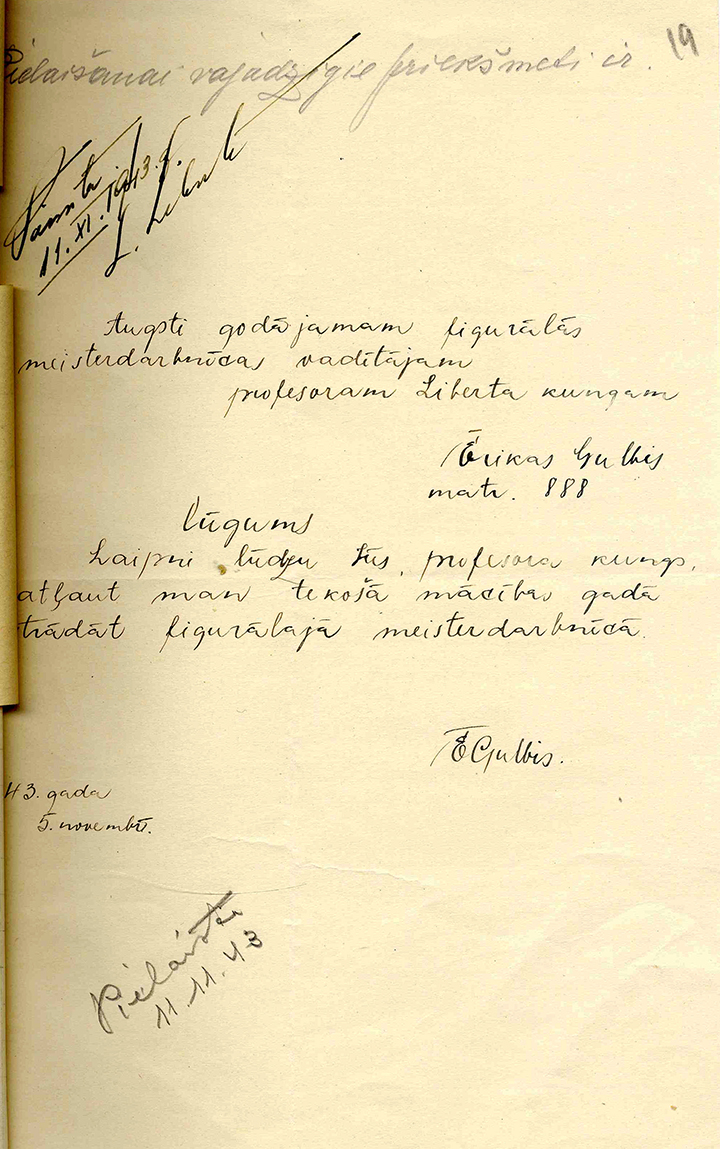 Pielaišanai vajadzīgie priekšmeti ir.
19
11. XI. 1943. g.
L. Liberts
Augsti godājamam figurālās
meisterdarbnīcas vadītājam
profesoram Liberta kungam
Ērikas Gulbis
matr. 888
lūgums
Laipni lūdzu Jūs, profesora kungs,
atļaut man tekošā mācības gadā
strādāt figurālajā meisterdarbnīcā.
ĒGulbis.
43. gada
5. novembrī.
Pielaista
11. 11. 43